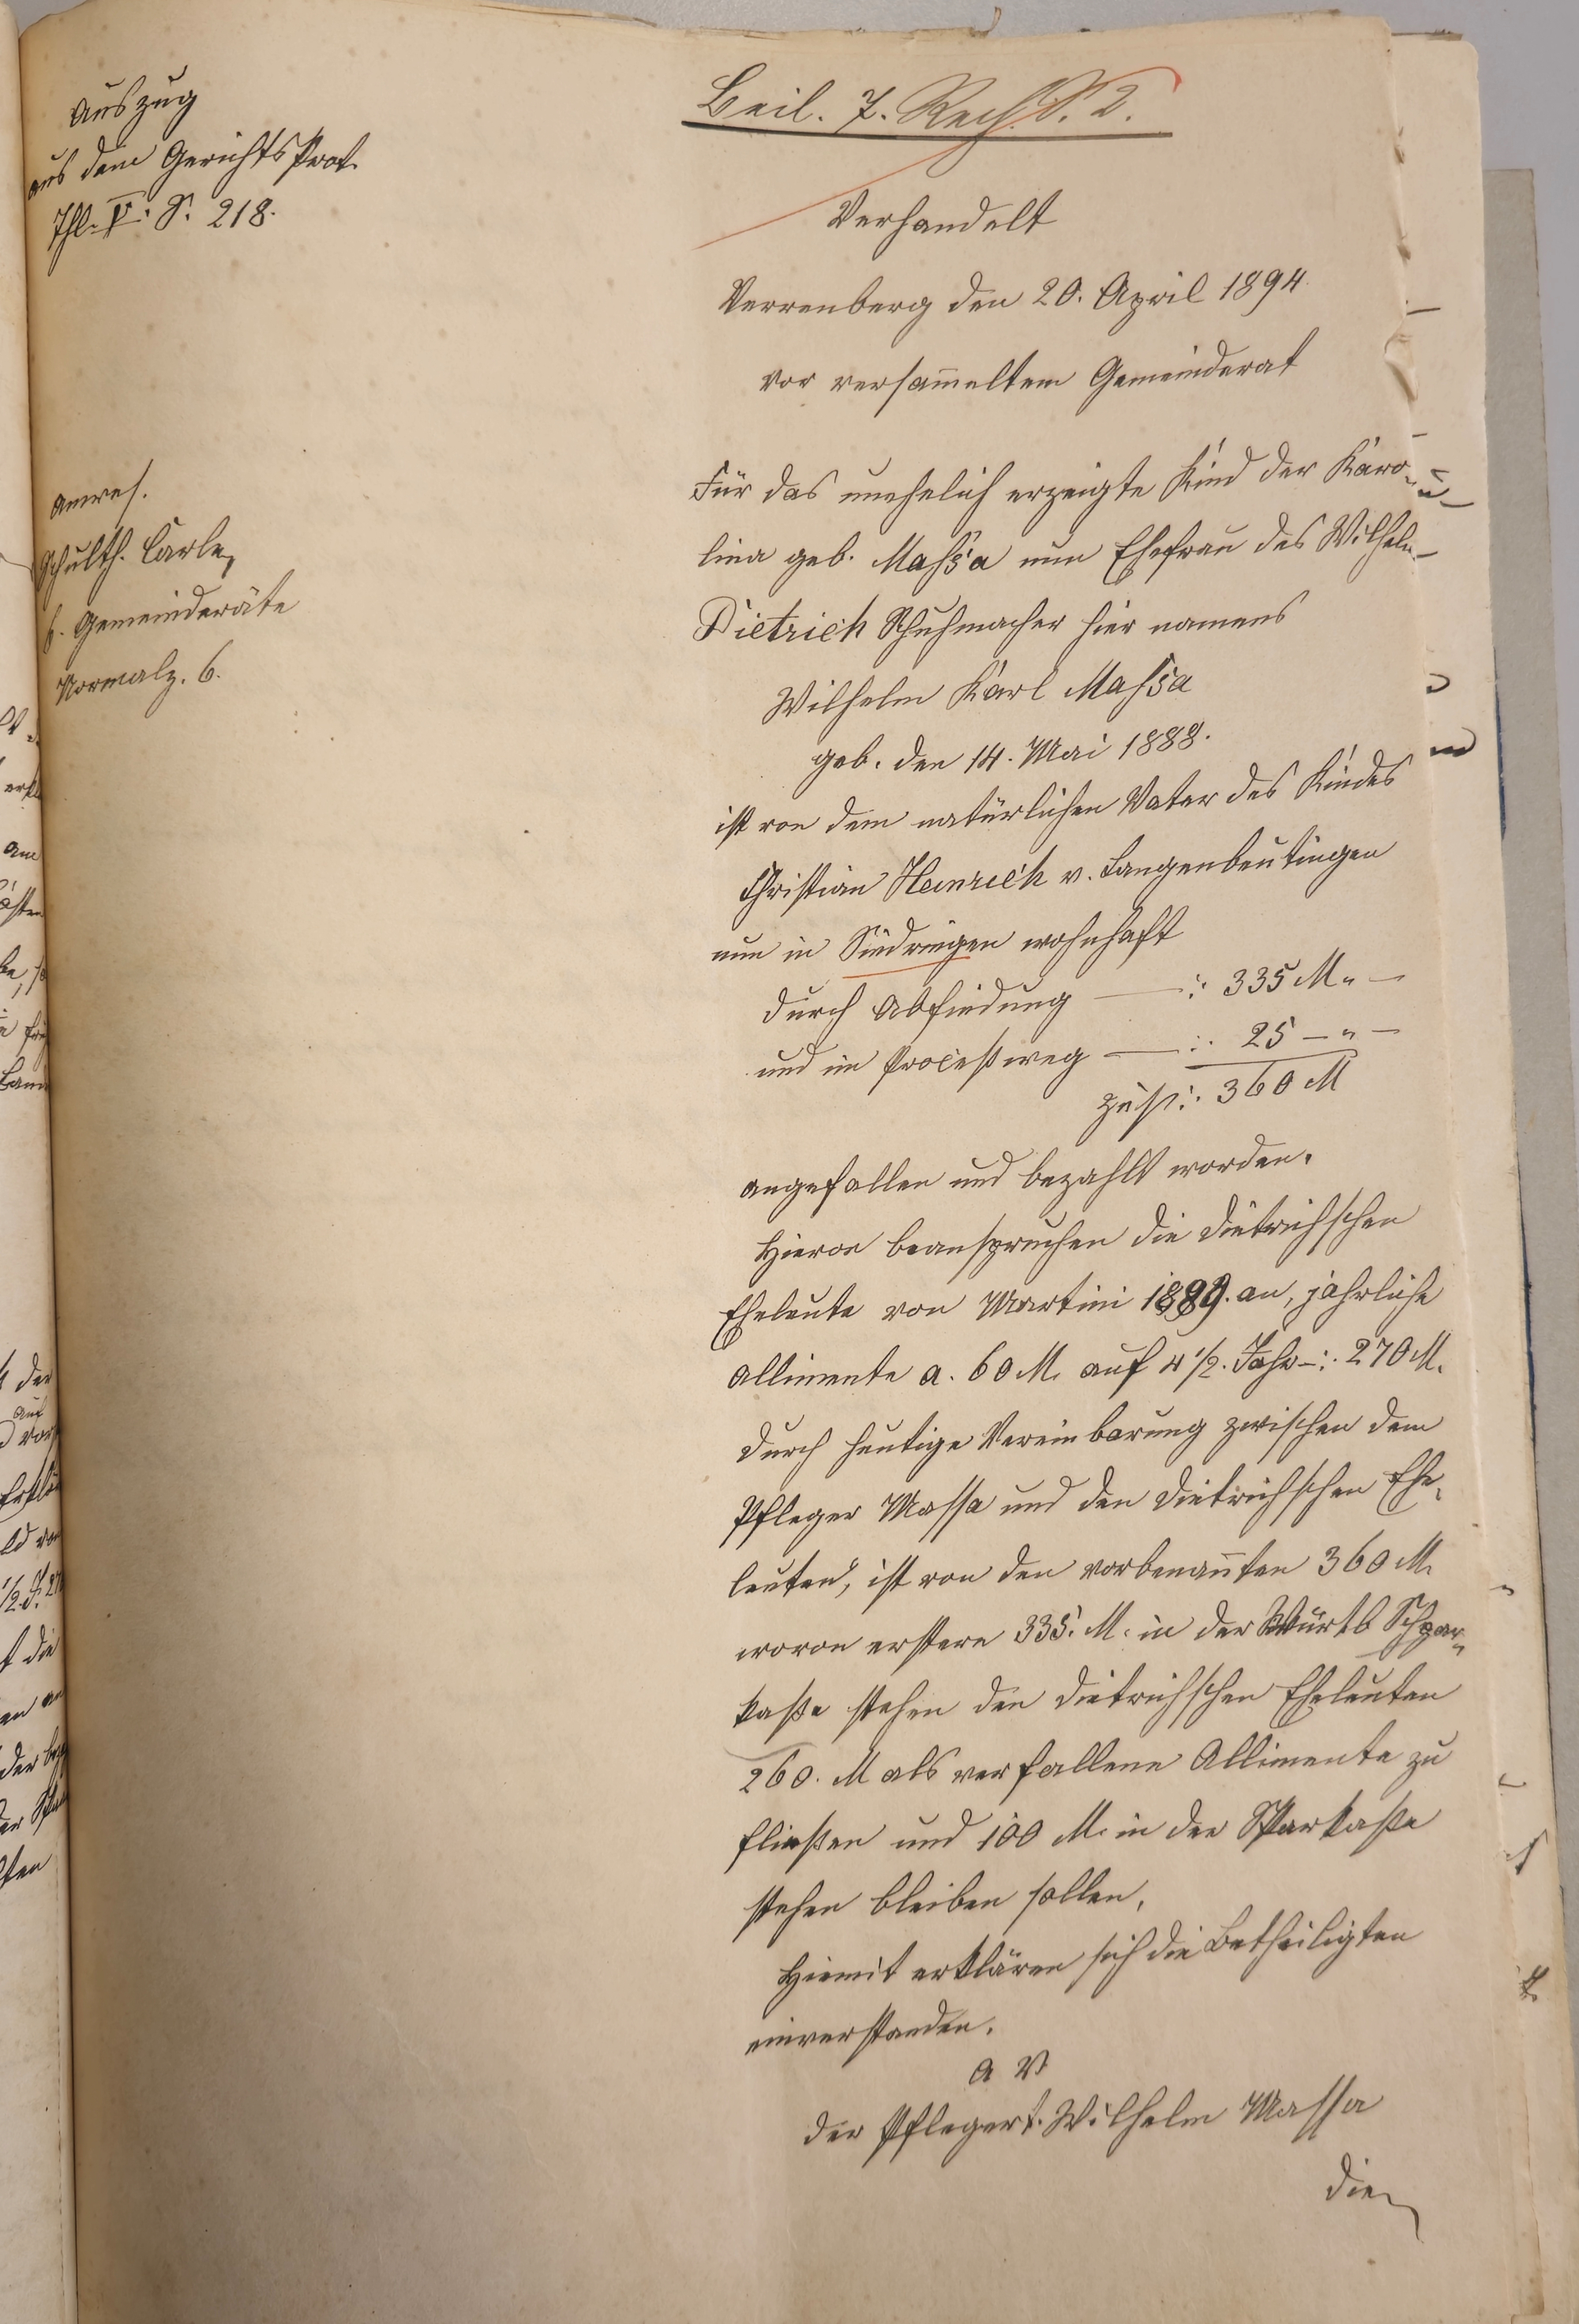 Auszug
aus dem Gerichts Prot.
Thl. V. S. 218.
Beil. 7. Rech. S. 2.
Verhandelt
Verrenberg den 20. April 1894
vor versam̄eltem Gemeinderat
Anwes.
Schulth. Carle,
6. Gemeinderäte
Normalz. 6.
Für das unehelich erzeigte Kind der Karo-
lina geb. Massa nun Ehefrau des Wilhelm
Dietrich Schuhmacher hier namens
Wilhelm Karl Massa
geb. den 14. Mai 1888.
ist von dem natürlichen Vater des Kindes
Christian Heinrich v. Langenbeutingen
nun in Sindringen wohnhaft
durch Abfindung —: 335 M. —
und im Proceßweg —: 25 — " —
zus: 360 M
angefallen und bezahlt worden.
Hievon beanspruchen die Dietrichschen
Eheleute von Martini 1889. an, jährliche
Allimente a. 60 M. auf 4 1/2. Jahr —: 270 M.
durch heutige Vereinbarung zwischen dem
Pfleger Massa und den Dietrichschen Ehe-
leuten, ist von den vorbenan̄ten 360 M.
wovon erstere 335. M. in der Württb Schpar-
kaße stehen den Dietrichschen Eheleuten
260. M als verfallene Allimente zu
fließen und 100 M. in der Sparkaße
stehen bleiben sollen.
Hiemit erklären sich die Betheiligten
einverstanden.
A V
der Pfleger t. Wilhelm Massa
die